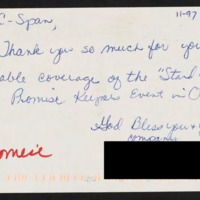 C-Span,
11-97
Thank you so much for you
able coverage of the "Stand
Promise Keepers Event in
God Bless you &
company
romise